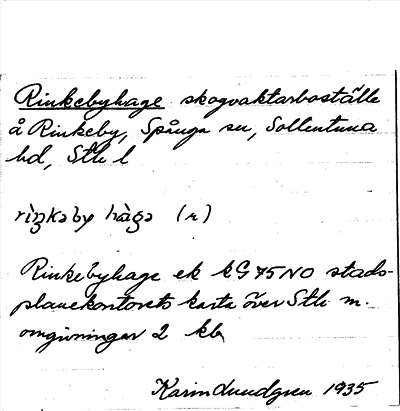 Rinkebyhage skogvaktarboställe
å Rinkeby, Spånga sn, Sollentuna
hd, Sthl l
rìŋkəby hàgə (r)
Rinkebyhage ek kG 75 NO stads-
planekontorets karta över Sthl m.
omgivningar 2 kb
Karin Lundgren 1935